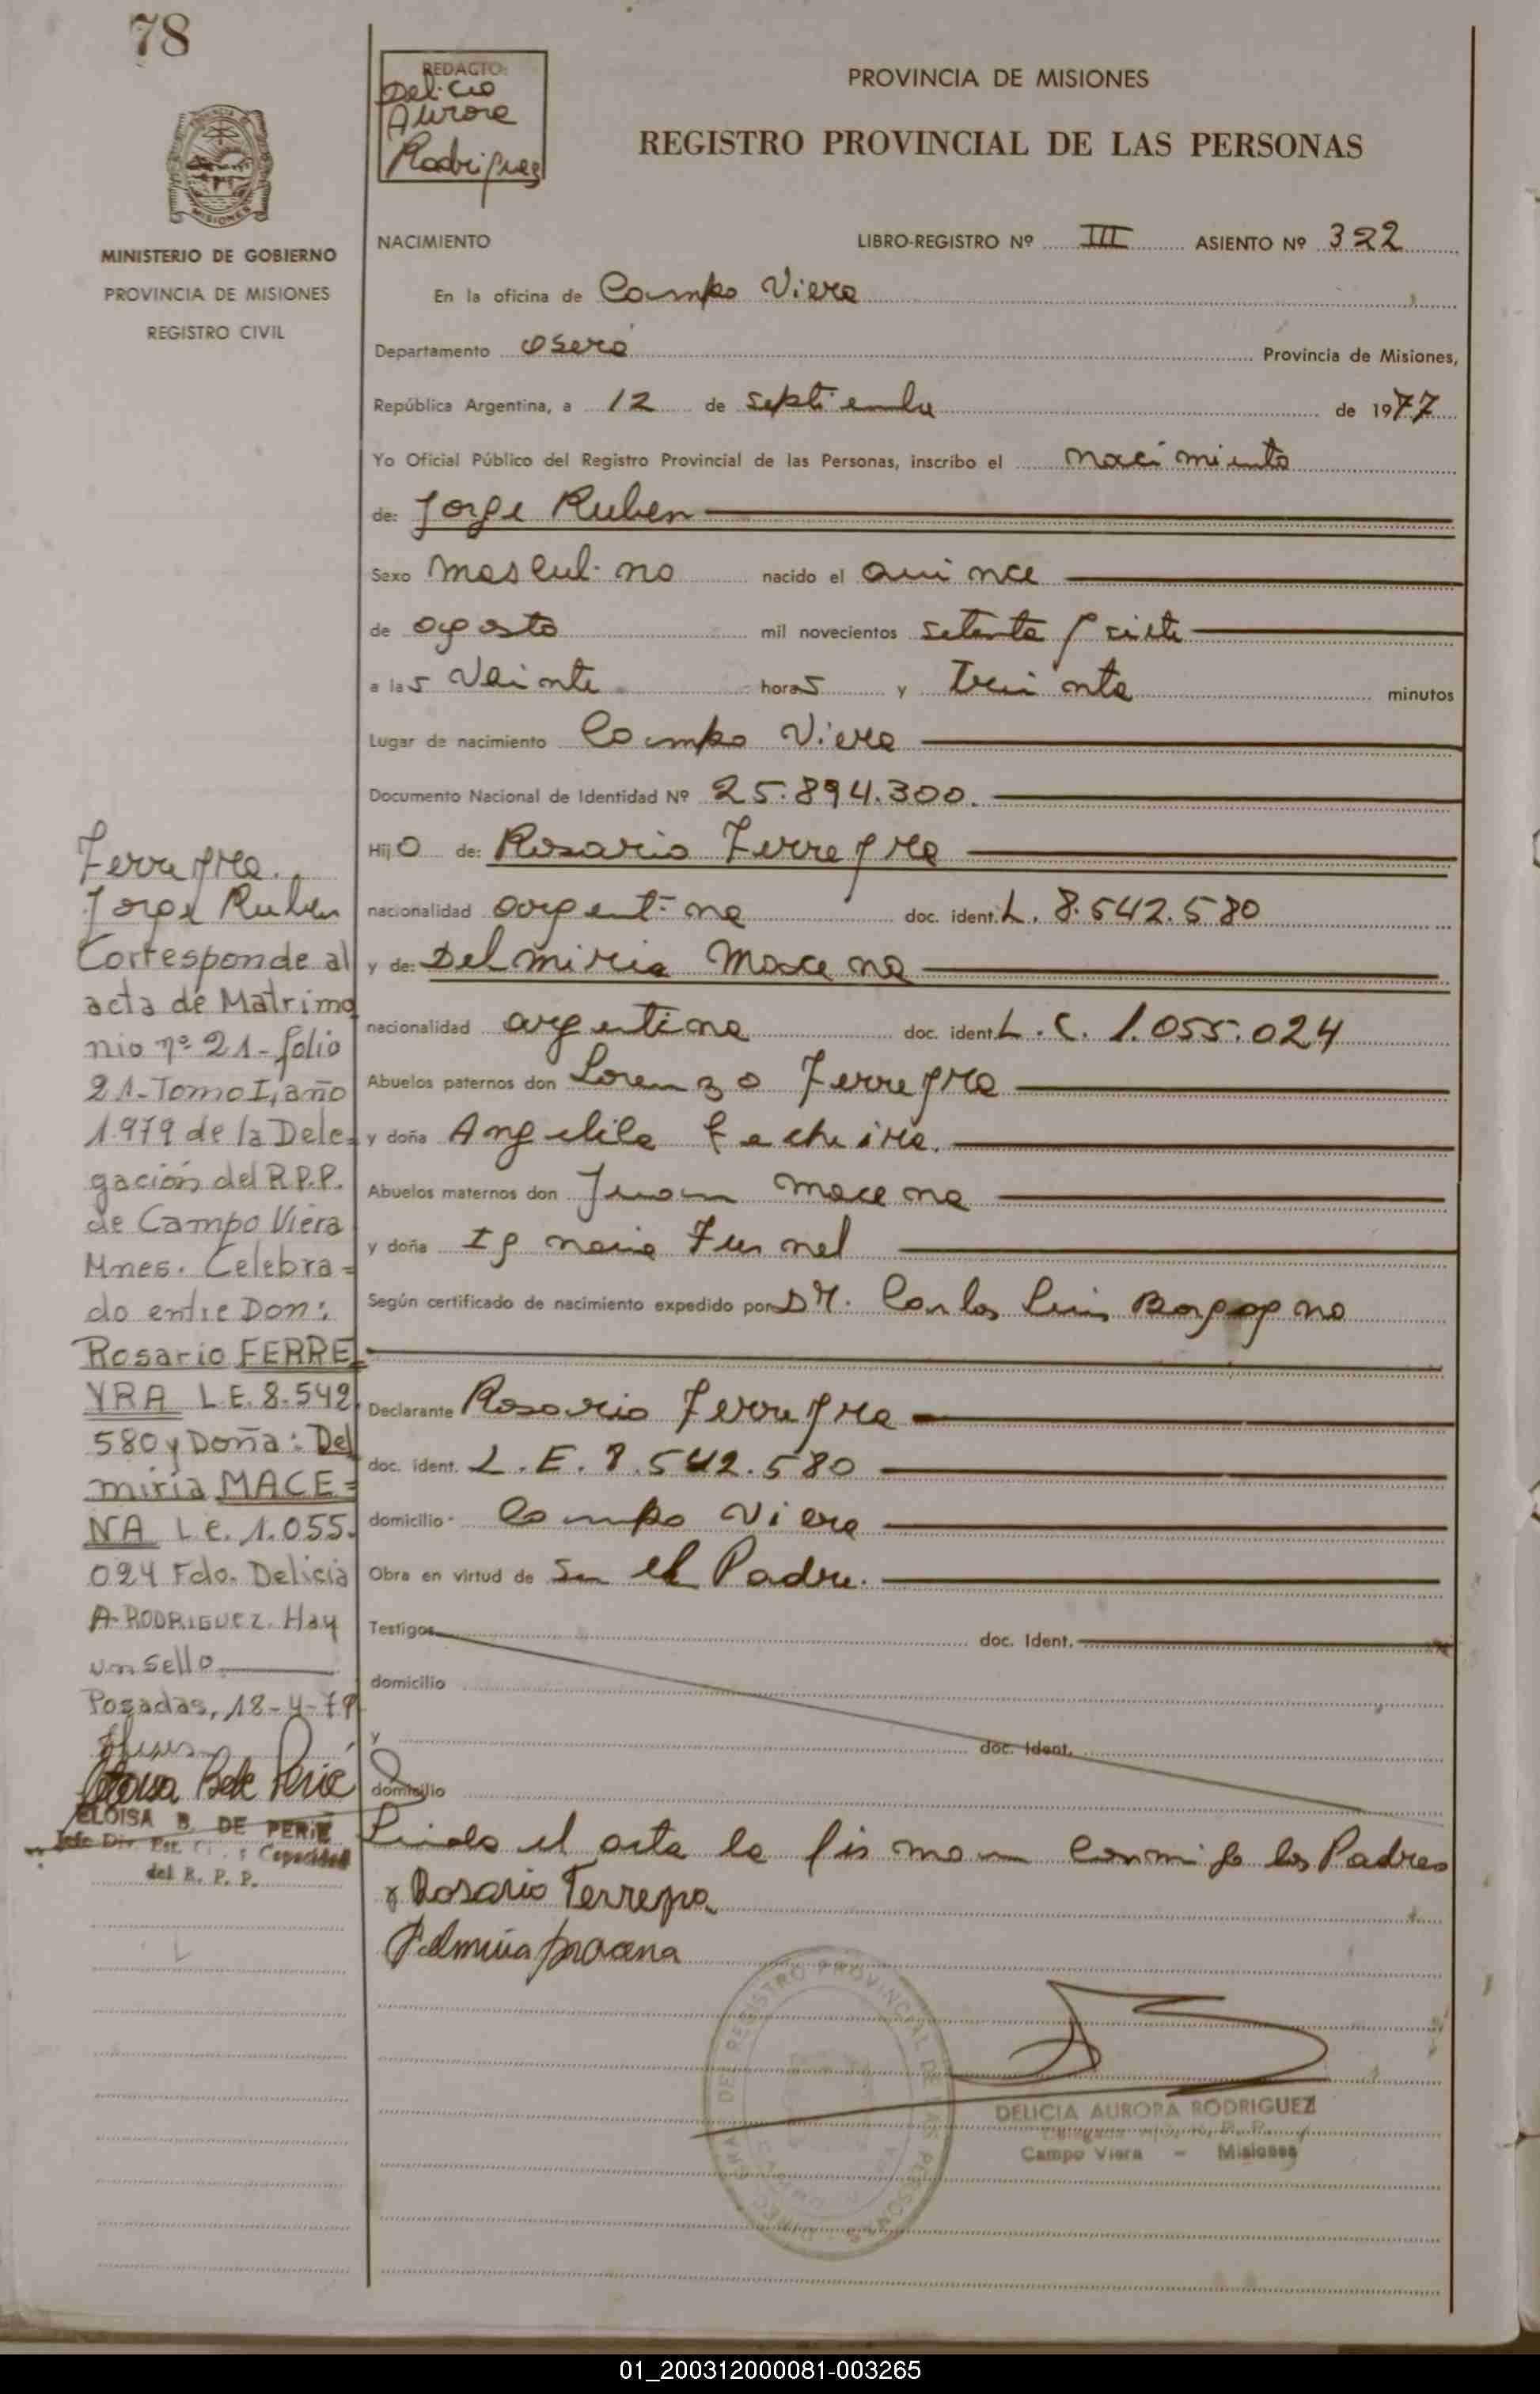 78
REDACTO:
Delicio
Aurora
Rodriguez
PROVINCIA DE MISIONES
REGISTRO PROVINCIAL DE LAS PERSONAS
MISIONES
MINISTERIO DE GOBIERNO
PROVINCIA DE MISIONES
REGISTRO CIVIL
NACIMIENTO LIBRO-REGISTRO Nº III ASIENTO Nº 322
En la oficina de Campo Viera
Departamento Oberá Provincia de Misiones,
República Argentina, a 12 de septiembre de 1977
Yo Oficial Público del Registro Provincial de las Personas, inscribo el nacimiento
de: Jorge Ruben
Sexo masculino nacido el quince
de agosto mil novecientos setenta y siete
a las veinte horas y treinta minutos
Lugar de nacimiento Campo Viera
Documento Nacional de Identidad Nº 25.894.300.
Hijo de: Rosario Ferreyra
nacionalidad argentina doc. ident. L. 8.542.580
y de: Delmiria Macena
nacionalidad argentina doc. ident. L.C. 1.055.024
Abuelos paternos don Lorenzo Ferreyra
y doña Angelila
Abuelos maternos don Juan Macena
y doña Ignacia
Según certificado de nacimiento expedido por Dr. Carlos Luis
Declarante Rosario Ferreyra
doc. ident. L.E. 8.542.580
domicilio Campo Viera
Obra en virtud de Ser el Padre.
Testigos doc. Ident.
domicilio
y doc. Ident.
domicilio
Leida el acta la firman conmigo los Padres
x Rosario Ferreyra
Delmiria Macena
DELICIA AURORA RODRIGUEZ
Campo Viera - Misiones
Ferreyra.
Jorge Ruben
Corresponde al
acta de Matrimo
nio nº 21-folio
21-Tomo I, año
1.979 de la Dele-
gación del R.P.P.
de Campo Viera
Mnes. Celebra=
do entre Don:
Rosario FERRE
YRA L.E. 8.542.
580 y Doña: Del
miria MACE=
NA L.C. 1.055.
024 Fdo. Delicia
A. RODRIGUEZ. Hay
un sello
Posadas, 18-4-79
ELOISA B. DE PERIE
Jefe Div. Est. C. y Capacidad
del R. P. P.
01_200312000081-003265